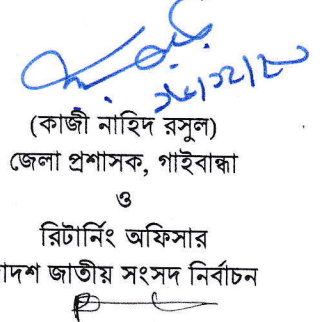 (কাজী নাহিদ রসুল)
জেলা প্রশাসক, গাইবান্ধা
ও
রিটার্নিং অফিসার
াদশ জাতীয় সংসদ নির্বাচন